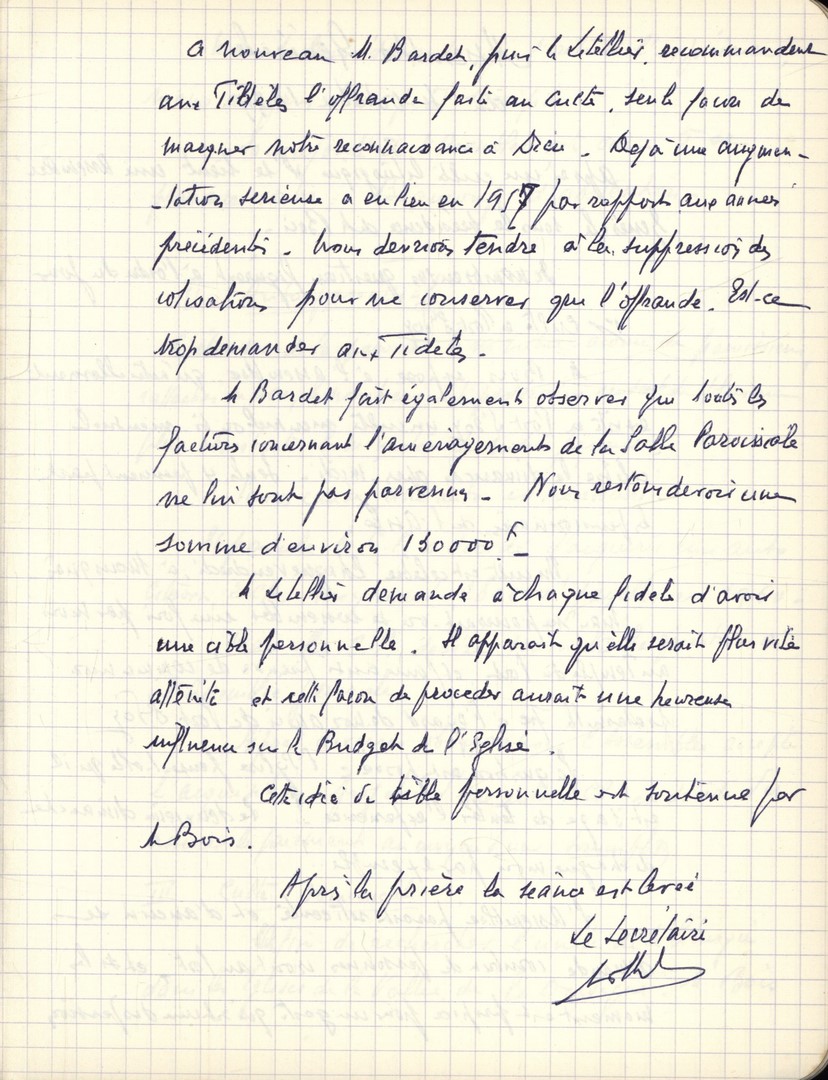 A nouveau M. Bardet, puis M Letellier, recommandent
aux Fidèles l'offrande faite au Culte, seule façon de
marquer notre reconnaissance à Dieu - Dejà une augmen-
-tation serieuse a eu lieu en 1957 par rapport aux années
précédentes - Nous devrions tendre à la suppression des
cotisations pour ne conserver que l'offrande. Est-ce
trop demander aux Fideles -
M Bardet fait également observer que toutes les
factures concernant l'aménagements de la Salle Paroissiale
ne lui sont pas parvenues - Nous restons devoir une
somme d'environ 130000 F -
M Letellier demande à chaque fidele d'avoir
une cible personnelle. Il apparait qu'elle serait plus vite
atteinte et cette façon de proceder aurait une heureuse
influence sur le Budget de l'Eglise.
Cette idée de cible personnelle est soutenue par
M Bois.
Après la prière la séance est levée
Le Secrétaire